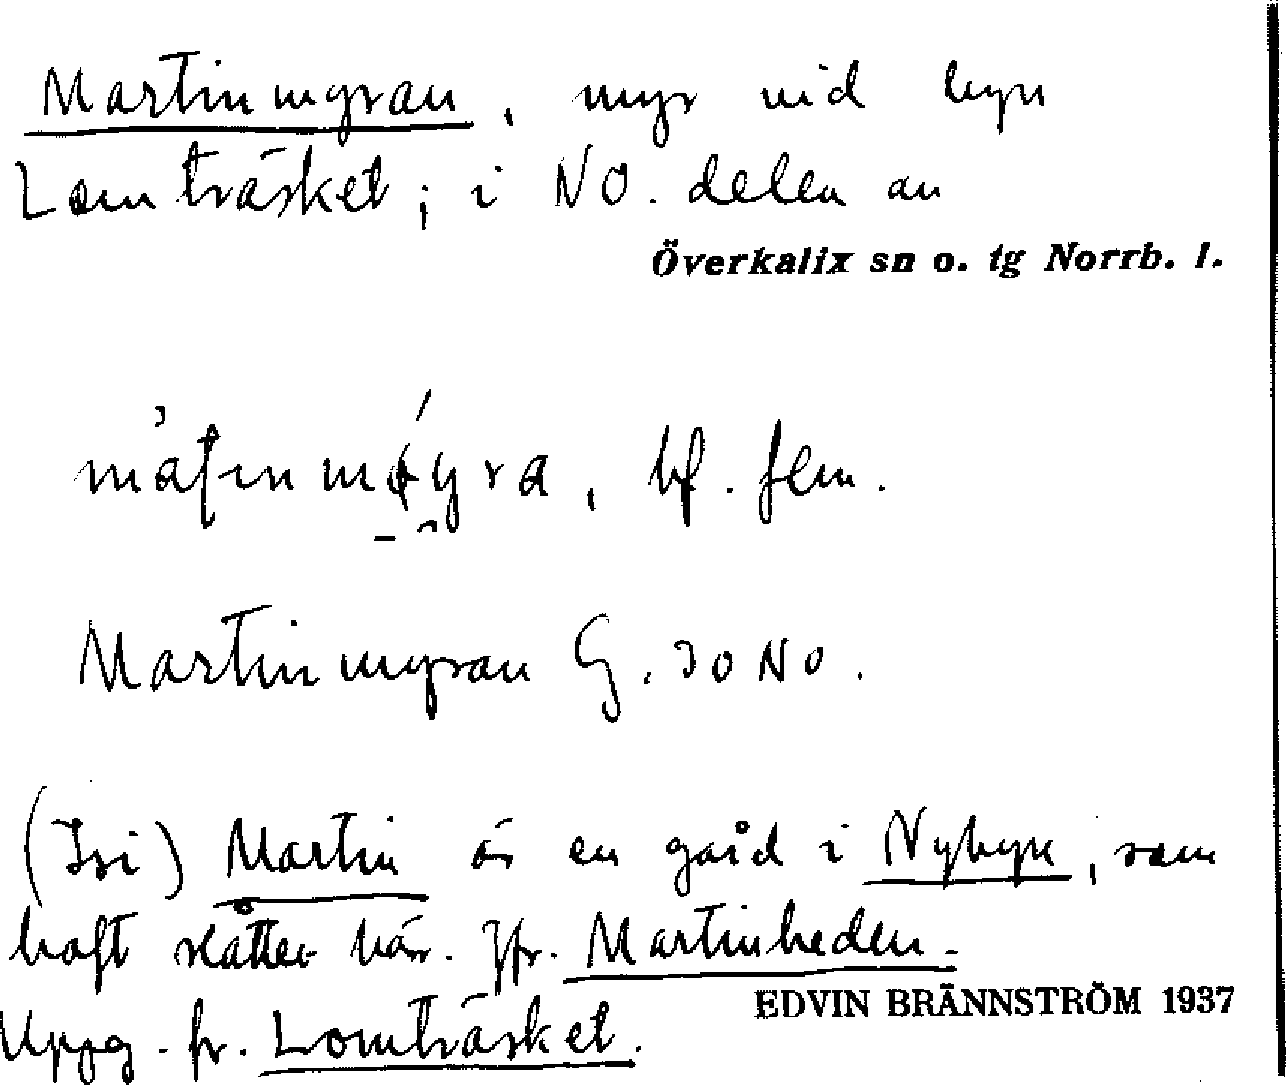 Martinmyran, myr vid byn
Lomträsket; i NO. delen av
Överkalix sn o. tg Norrb. l.
bf. fem.
Martinmyran G. 30 NO.
(Isi) Martin är en gård i Nybyn, som
haft slåtter här. Jfr. Martinheden.
Uppg. fr. Lomträsket.
EDVIN BRÄNNSTRÖM 1937